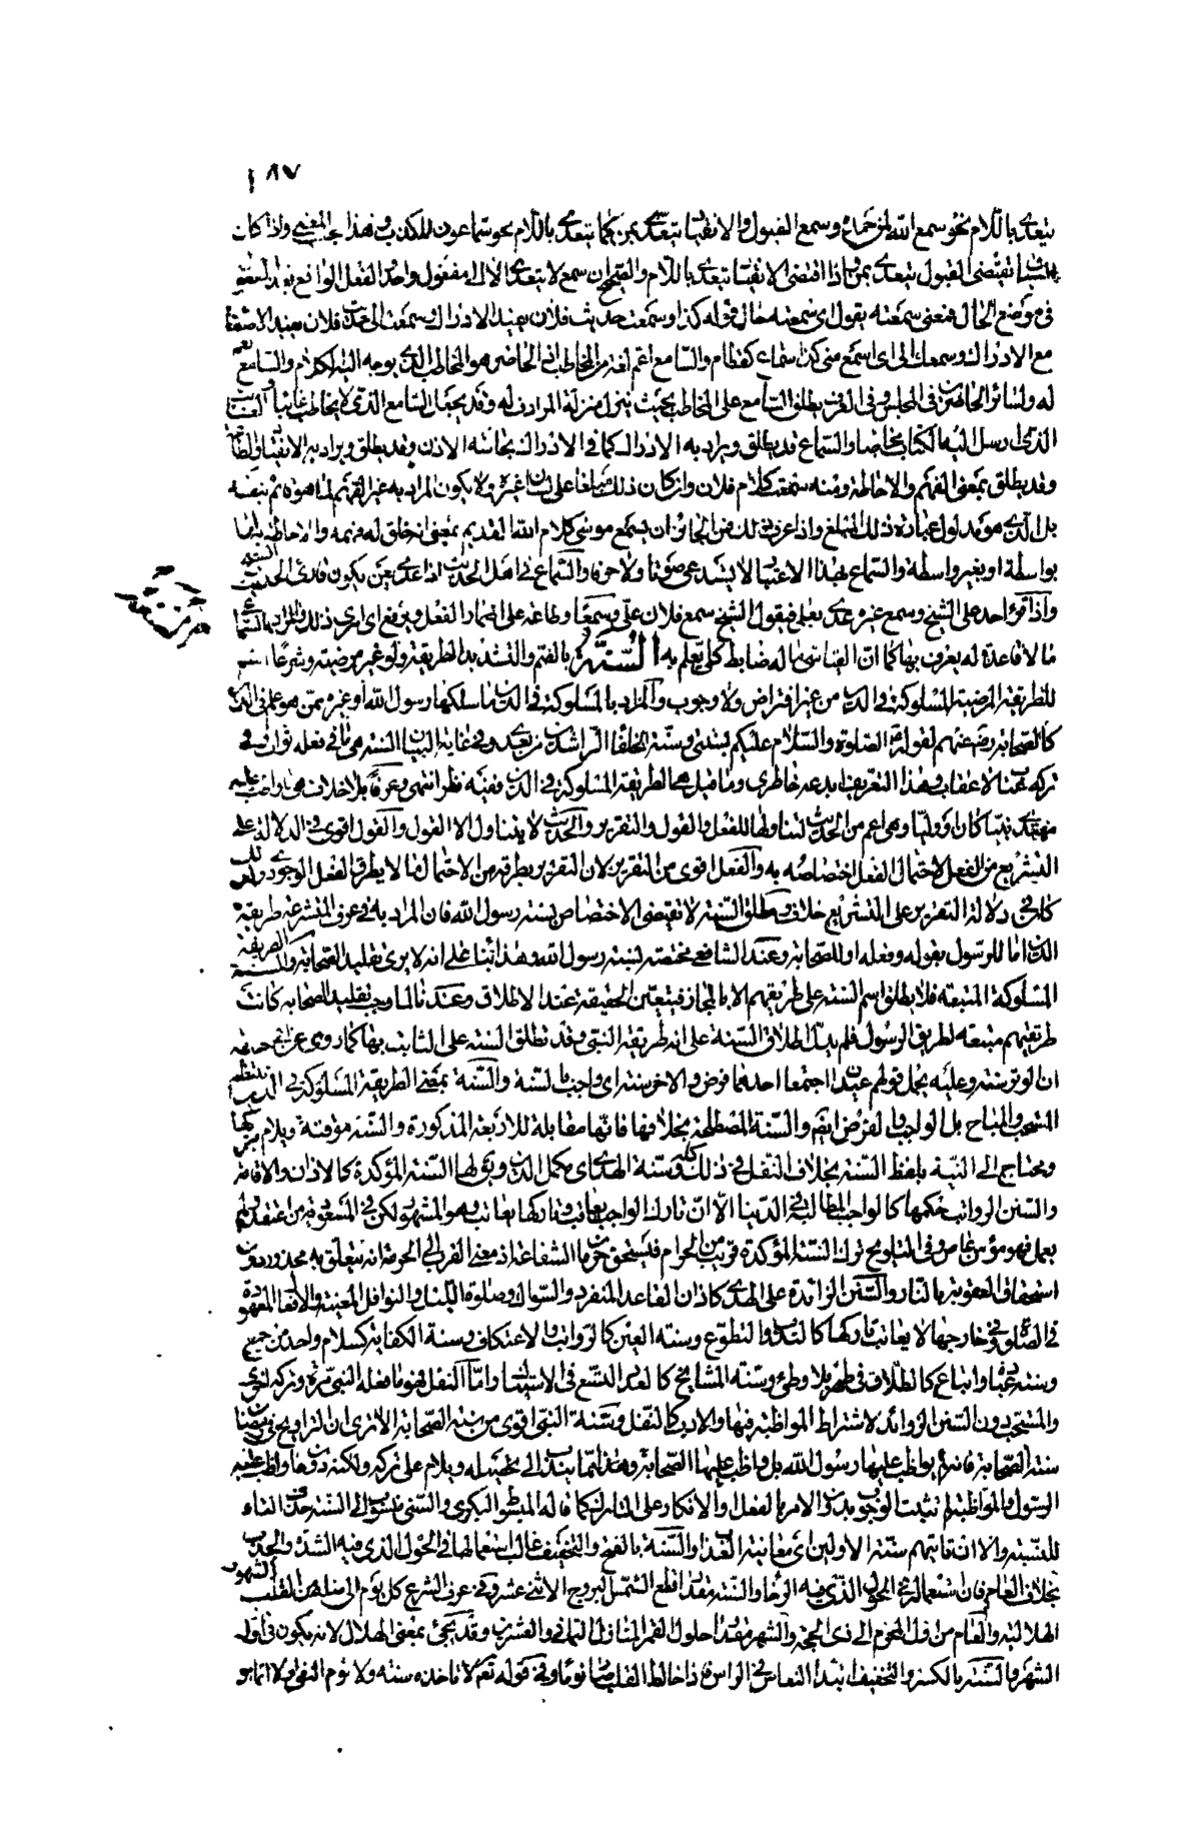 ١٨٧
يتعدى باللام نحو سمع الله لمن حمده وسمع القبول والانقياد يتعدى بمن كما يتعدى باللام نحو سماعون للكذب وهذا بحسب المعنى واذا كان
السياق يقتضى القبول يتعدى بمن واذا اقتضى الانقياد تعدى باللام والصحيح ان سمع لا يتعدى الا الى مفعول واحد والفعل الواقع بعد المفعول
فى موضع الحال فمعنى سمعته يقول اى سمعته حال قوله كذا وسمعت حديث فلان يفيد الادراك وسمعت الى حديث فلان يفيد الاصغاء
مع الادراك وسمعك الى اى اسمع منى كذا سماع كقطام والسامع اعم لغة من المخاطب اذ الحاضر هو المخاطب الذى يوجه اليه الكلام والسامع يعم
له ولسائر الحاضرين فى المجلس وفى العرف يطلق السامع على المخاطب بحيث ينزل منزلة المرادف له وقد يجعل السامع الذى لا يخاطب غائبا والغائب
الذى ارسل اليه الكتاب مخاطبا والسماع قد يطلق ويراد به الادراك كما فى الادراك بحاسة الاذن وقد يطلق ويراد به الانقياد والطاعة
وقد يطلق بمعنى الفهم والاحاطة ومنه سمعت كلام فلان وان كان ذلك مبلغا على لسان غيره ولا يكون المراد به غير الفهم لما هو قائم بنفسه
بل الذى هو مدلول عبارة ذلك المبلغ واذا عرف ذلك فمن الجائز ان يسمع موسى كلام الله القديم بمعنى انه خلق له فهمه والاحاطة به اما
بواسطة او بغير واسطة والسماع بهذا الاعتبار لا يستدعى صوتا ولا حرفا والسماع فى اهل الحديث اذا عدى بعن يكون قارئ الحديث الشيخ
واذا قرأ احد على الشيخ وسمع غيره عدى بعلى فيقول الشيخ سمع فلان على وسمعا وطاعة على اضمار الفعل ويرفع اى امرى ذلك والمراد بالسماعى
ما لا قاعدة له يعرف بها كما ان القياسى ما له ضابط كلى يعلم به السنة بالضم والتشديد الطريقة ولو غير مرضية وشرعا اسم
للطريقة المرضية المسلوكة فى الدين من غير افتراض ولا وجوب والمراد بالمسلوكة فى الدين ما سلكها رسول الله او غيره ممن هو علم فى الدين
كالصحابة رضى عنهم لقوله عليه الصلوة والسلام عليكم بسنتى وسنة الخلفاء الراشدين من بعدى وفى غاية البيان السنة هى ما فى فعله ثواب وفى
تركه عتاب لا عقاب وهذا التعريف ابدعه خاطرى وما قيل هى الطريقة المسلوكة فى الدين ففيه نظر انتهى وعرفا بلا خلاف هى ما واظب عليه
مقتدى نبيا كان او وليا وهى اعم من الحديث لتناولها للفعل والقول والتقرير والحديث لا يتناول الا القول والقول اقوى فى الدلالة على
التشريع من الفعل لاحتمال الفعل اختصاصه به والفعل اقوى من التقرير لان التقرير يطرقه من الاحتمال ما لا يطرق الفعل الوجودى ولذلك
كان فى دلالة التقرير على التشريع خلاف ومطلق السنة لا يقتضى الاختصاص بسنة رسول الله فان المراد به فى عرف المتشرعة طريقة
الدين اما للرسول بقوله وفعله او للصحابة وعند الشافعى مختصة بسنة رسول الله وهذا بناء على انه لا يرى تقليد الصحابة والسنة الطريقة
المسلوكة المتبعة فلا يطلق اسم السنة على طريقهم الا بالمجاز فيتعين الحقيقة عند الاطلاق وعندنا لما وجب تقليد الصحابة كانت
طريقتهم متبعة لطريق الرسول فلم يدل اطلاق السنة على انه طريقة النبى وقد تطلق السنة على الثابت بها كما روى عن ابى حنيفة
ان الوتر سنة وعليه يحمل قولهم عيدان اجتمعا احدهما فرض والآخر سنة اى واجب بالسنة والسنة بمعنى الطريقة المسلوكة فى الدين تنتظم
المستحب والمباح بل الواجب والفرض ايضا والسنة المصطلحة بخلافها فانها مقابلة للاربعة المذكورة والسنة مؤقتة ويلام بتركها
ومحتاج الى النية بلفظ السنة بخلاف النفل فى ذلك كله وسنة الهدى اى مكمل الدين ويقال لها السنة المؤكدة كالاذان والاقامة
والسنن الرواتب حكمها كالواجب المطالبة فى الدنيا الا ان تارك الواجب يعاقب وتاركها يعاتب وهو المشهور لكن فى المسعودية من اعتقد ولم
يعمل فهو مؤمن عاص وفى التلويح ترك السنة المؤكدة قريب من الحرام فيستحق حرمان الشفاعة اذ معنى القرب الى الحرمة انه يتعلق به محذور دون
استحقاق العقوبة بالنار والسنن الزائدة على الهدى كاذان القاعد المنفرد والسواك وصلوة الليل والنوافل المعينة والافعال المعهودة
فى الصلوة وفى خارجها لا يعاتب تاركها كالندب والتطوع وسنة العين كالرواتب والاعتكاف وسنة الكفاية كسلام واحد من جمع
وسنة عبادة واتباع كالطلاق فى طهر بلا وطئ وسنة المشايخ كالعدد التسع فى الاستنجاء واما النفل فهو ما فعله النبى مرة وتركه اخرى
والمستحب دون السنن الزوائد لاشتراط المواظبة فيها والادب كالنفل وسنة النبى اقوى من سنة الصحابة الا ترى ان التراويح فى رمضان
سنة الصحابة فانه لم يواظب عليها رسول الله بل واظب عليها الصحابة وهذا مما يندب الى تحصيله ويلام على تركه ولكنه دون ما واظب عليه
الرسول والمواظبة لم تثبت الوجوب بدون الامر بالفعل والانكار على التارك كما قاله المبسوط البكرى والسنى منسوب الى السنة حذف التاء
للنسبة والا ان تاتيهم سنة الاولين اى معاينة العذاب والسنة بالفتح والتخفيف غالب استعمالها فى الحول الذى فيه الشدة والجدب
بخلاف العام فان استعماله فى الحول الذى فيه الرخاء والسنة مقدار قطع الشمس البروج الاثنى عشر وفى عرف الشرع كل يوم الى مثله من القابل الشهور
الهلالية والعام من اول المحرم الى ذى الحجة والشهر مقدار حلول القمر المنازل الثمانى والعشرين وقد يجئ بمعنى الهلال لانه يكون فى اول
الشهر والسنة بالكسر والتخفيف ابتداء النعاس فى الرأس فاذا خالط القلب صار نوما وفى قوله تعالى لا تاخذه سنة ولا نوم النفى اولا انما هو